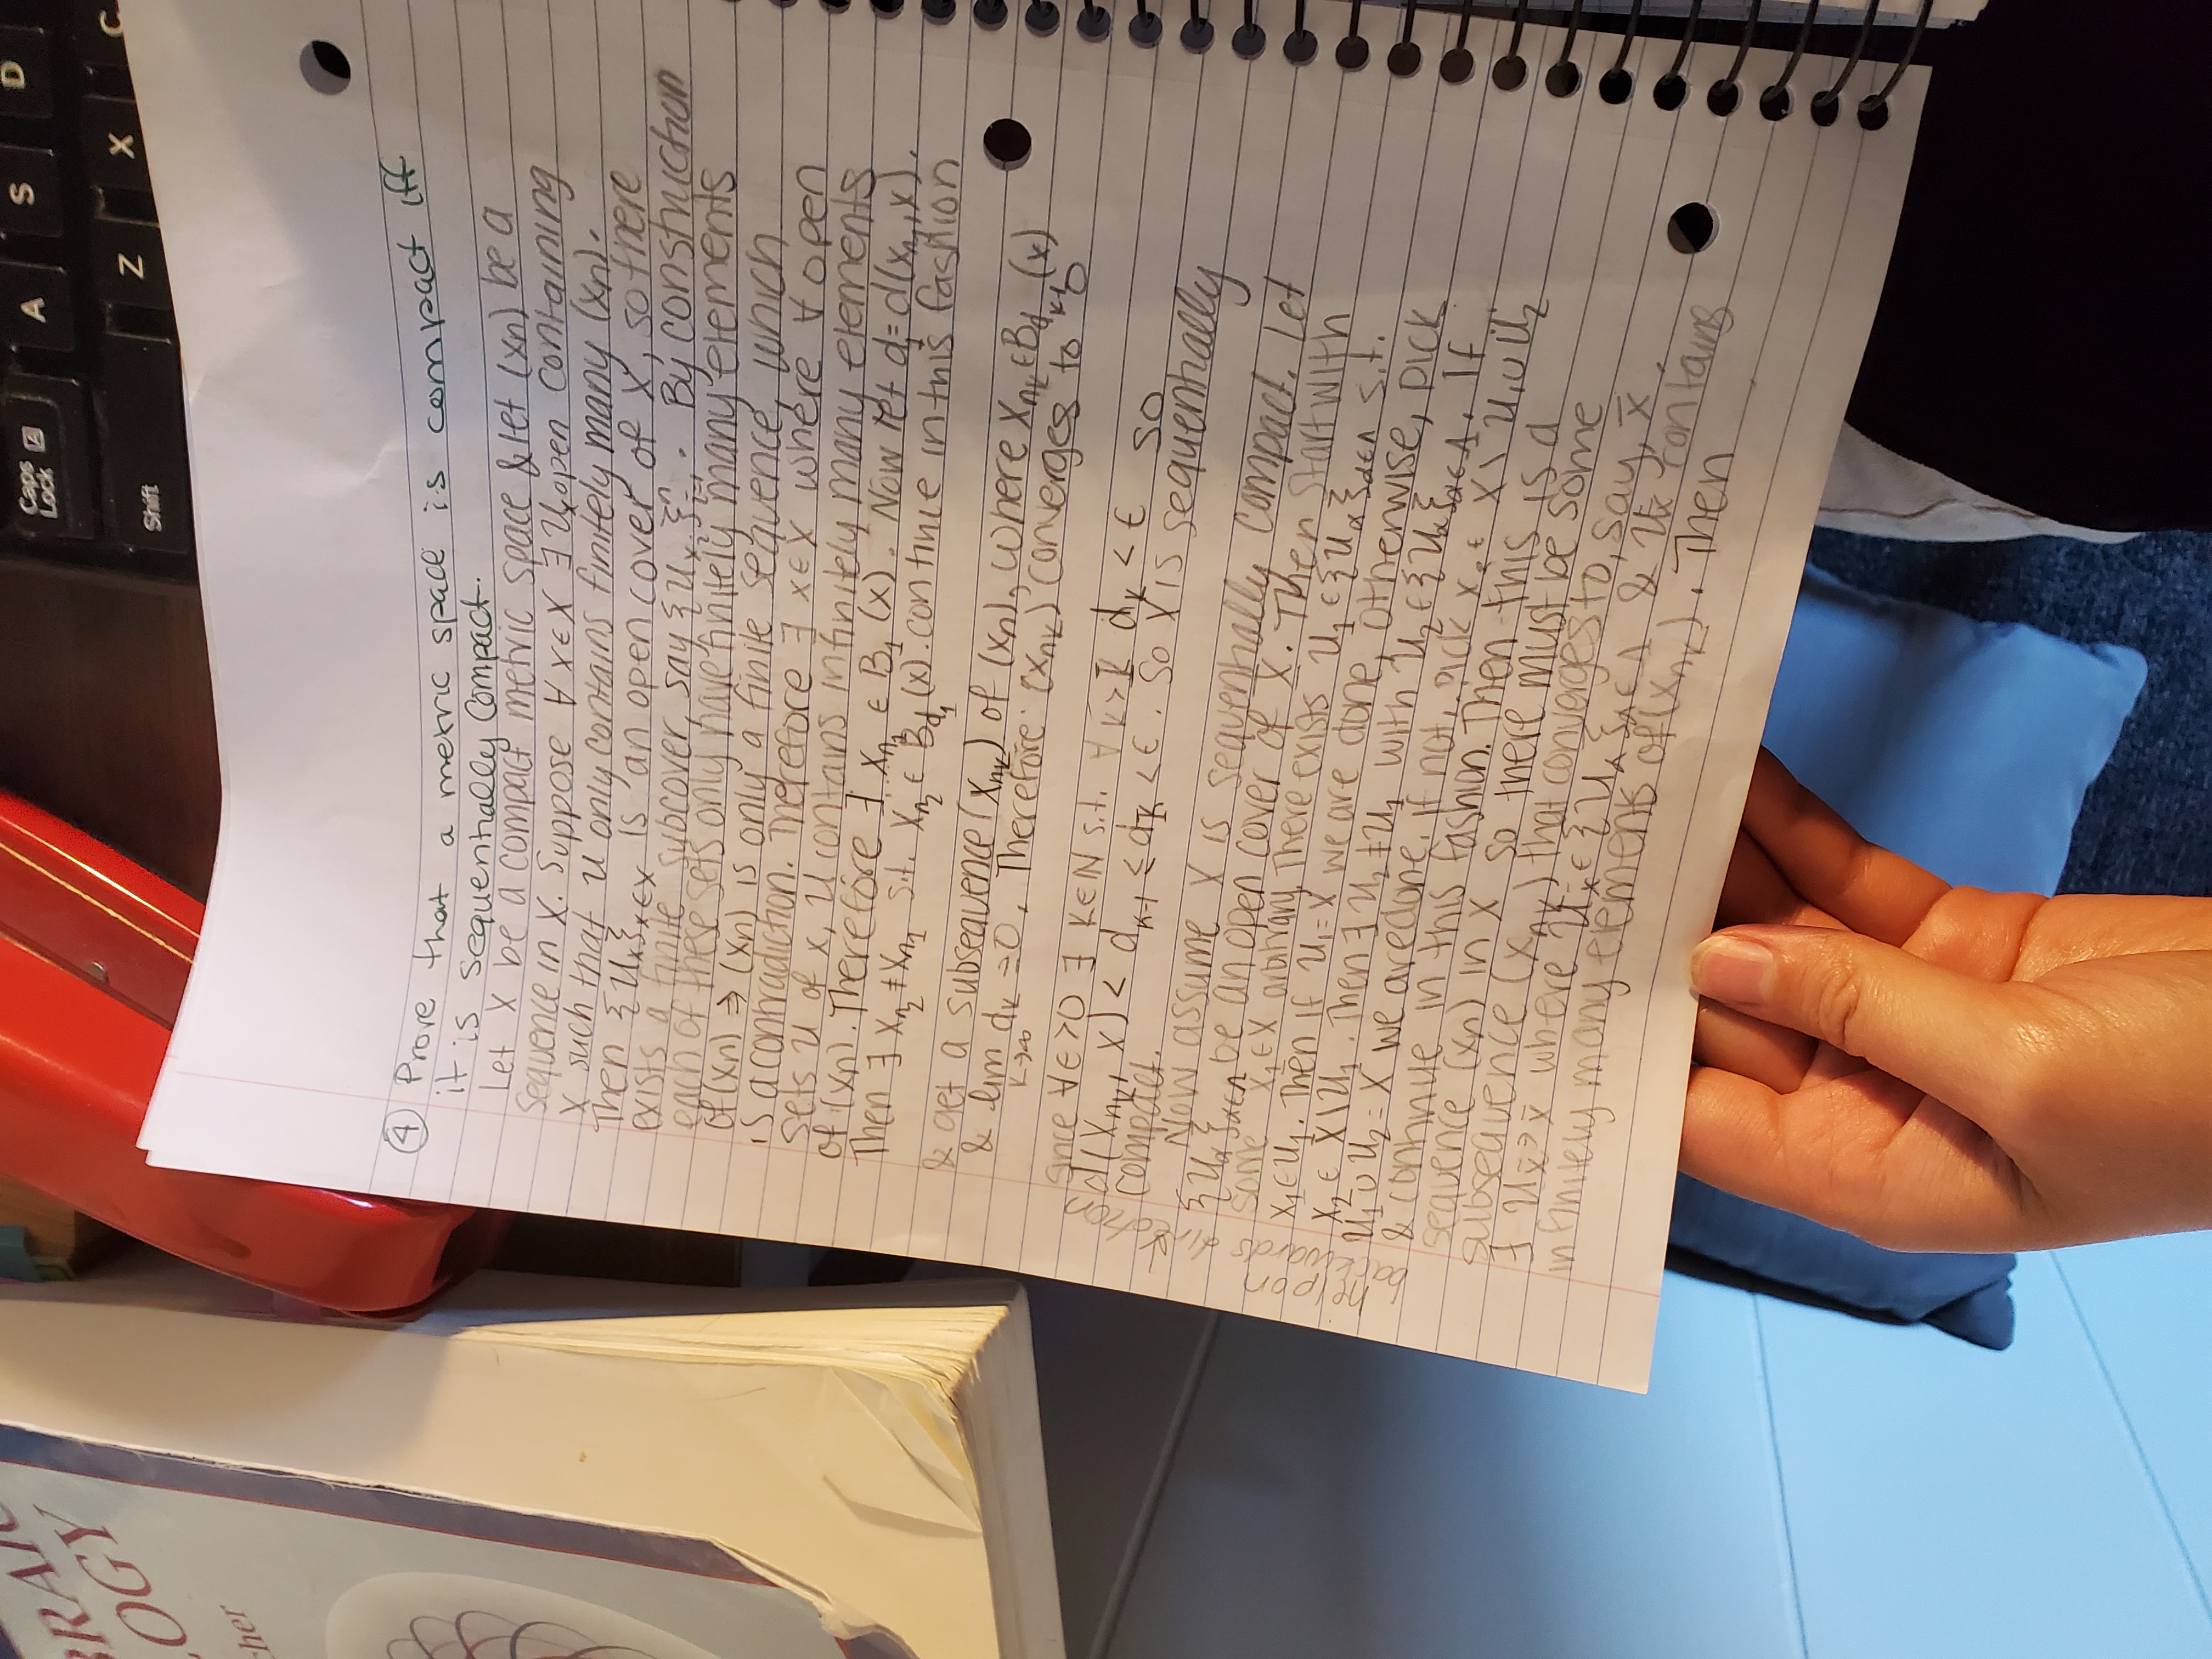 BRAIC
LOGY
cher
Caps Lock A
A
S
D
Shift
Z
X
C
④ Prove that a metric space is compact iff
it is sequentially compact.
Let X be a compact metric space & let (xₙ) be a
sequence in X. Suppose ∀ x ∈ X ∃ Uₓ open containing
x such that U only contains finitely many (xₙ).
Then {Uₓ}ₓ∈X is an open cover of X, so there
exists a finite subcover, say {U_{x_i}}ⁿᵢ₌₁. By construction
each of these sets only have finitely many elements
of (xₙ) ⇒ (xₙ) is only a finite sequence, which
is a contradiction. Therefore ∃ x∈X where ∀ open
sets U of x, U contains infinitely many elements
of (xₙ). Therefore ∃ x_{n_1} ∈ B_1(x). Now let d_1 = d(x_{n_1}, x).
Then ∃ x_{n_2} ≠ x_{n_1} s.t. x_{n_2} ∈ B_{d_1}(x). continue in this fashion
& get a subsequence (x_{n_k}) of (xₙ), where x_{n_k} ∈ B_{d_{k-1}}(x)
& lim_{k→∞} d_k = 0. Therefore (x_{n_k}) converges to 0
since ∀ϵ>0 ∃ K∈ℕ s.t. ∀ k > K̄ d_k < ϵ so
d(x_{n_k}, x) < d_{k-1} ≤ d_K̄ < ϵ. So X is sequentially
compact.
Now assume X is sequentially compact. Let
{U_α}_{α∈Λ} be an open cover of X. Then start with
some x_1 ∈ X arbitrary. There exists U_1 ∈ {U_α}_{α∈Λ} s.t.
x_1 ∈ U_1. Then if U_1 = X we are done, otherwise, pick
x_2 ∈ X \ U_1. Then ∃ U_2 ≠ U_1 with U_2 ∈ {U_α}_{α∈Λ}. If
U_1 ∪ U_2 = X we are done. If not, pick x ∈ X \ U_1 ∪ U_2
& continue in this fashion. Then this is a
sequence (xₙ) in X so there must be some
subsequence (x_{n_k}) that converges to, say, x̄.
∃ U_x̄ ∋ x̄ where U_x̄ ∈ {U_α}_{α∈Λ} & U_x̄ contains
infinitely many elements of (x_{n_k}). Then
help on
backwards direction